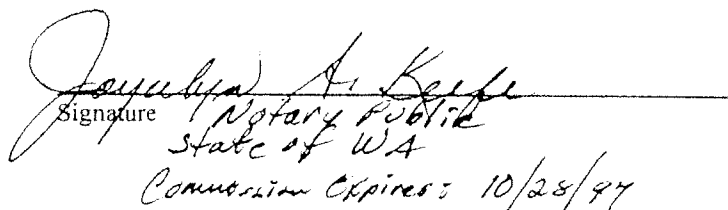 A. Keefe
Signature Notary Public
State of WA
Commission Expires: 10/28/97